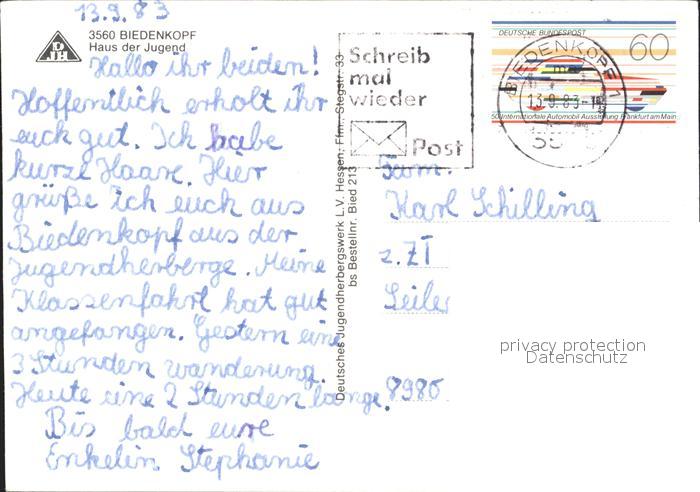 13.9.83
3560 BIEDENKOPF
Haus der Jugend
DJH
Hallo ihr beiden!
Hoffentlich erholt ihr
euch gut. Ich habe
kurze Haare. Hier
grüße ich euch aus
Biedenkopf aus der
Jugendherberge. Meine
Klassenfahrt hat gut
angefangen. Gestern eine
3 Stunden wanderung.
Heute eine 2 Stunden lange.
Bis bald eure
Enkelin Stephanie
Deutsches Jugendherbergswerk L.V. Hessen, Ffm., Stegstr. 33
bs Bestellnr. Bied 213
Schreib
mal
wieder
Post
DEUTSCHE BUNDESPOST
60
50 Internationale Automobil Ausstellung Frankfurt am Main
BIEDENKOPF 1
13.9.83
Fam.
Karl Schilling
z. ZT
Seiler
8980
privacy protection
Datenschutz